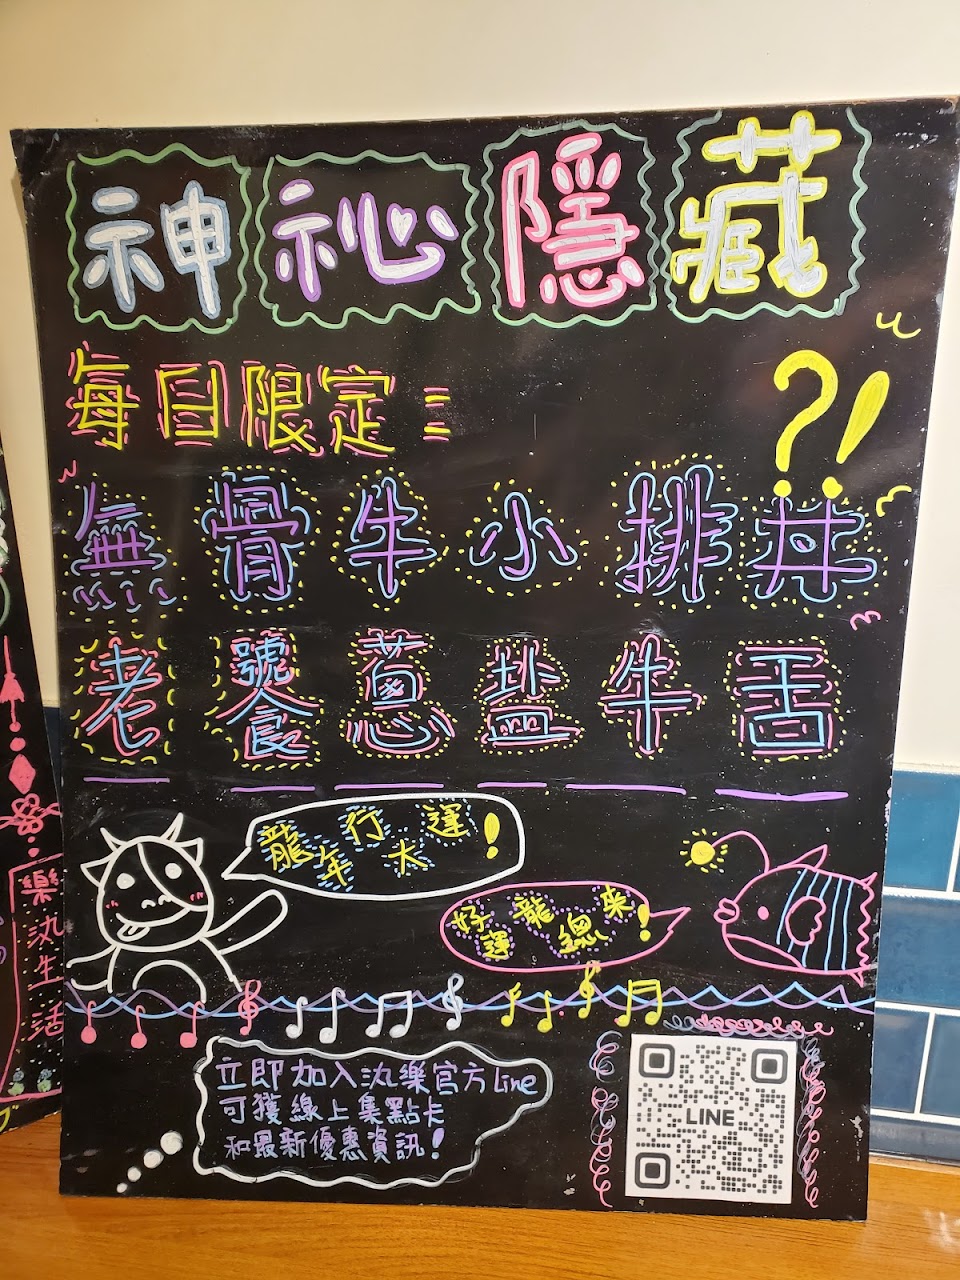 神祕隱藏
每日限定：
?!
無骨牛小排丼
老饕蔥鹽牛
龍年行大運！
好運龍總來！
立即加入氿樂官方Line
可獲線上集點卡
和最新優惠資訊！
LINE
樂氿生活